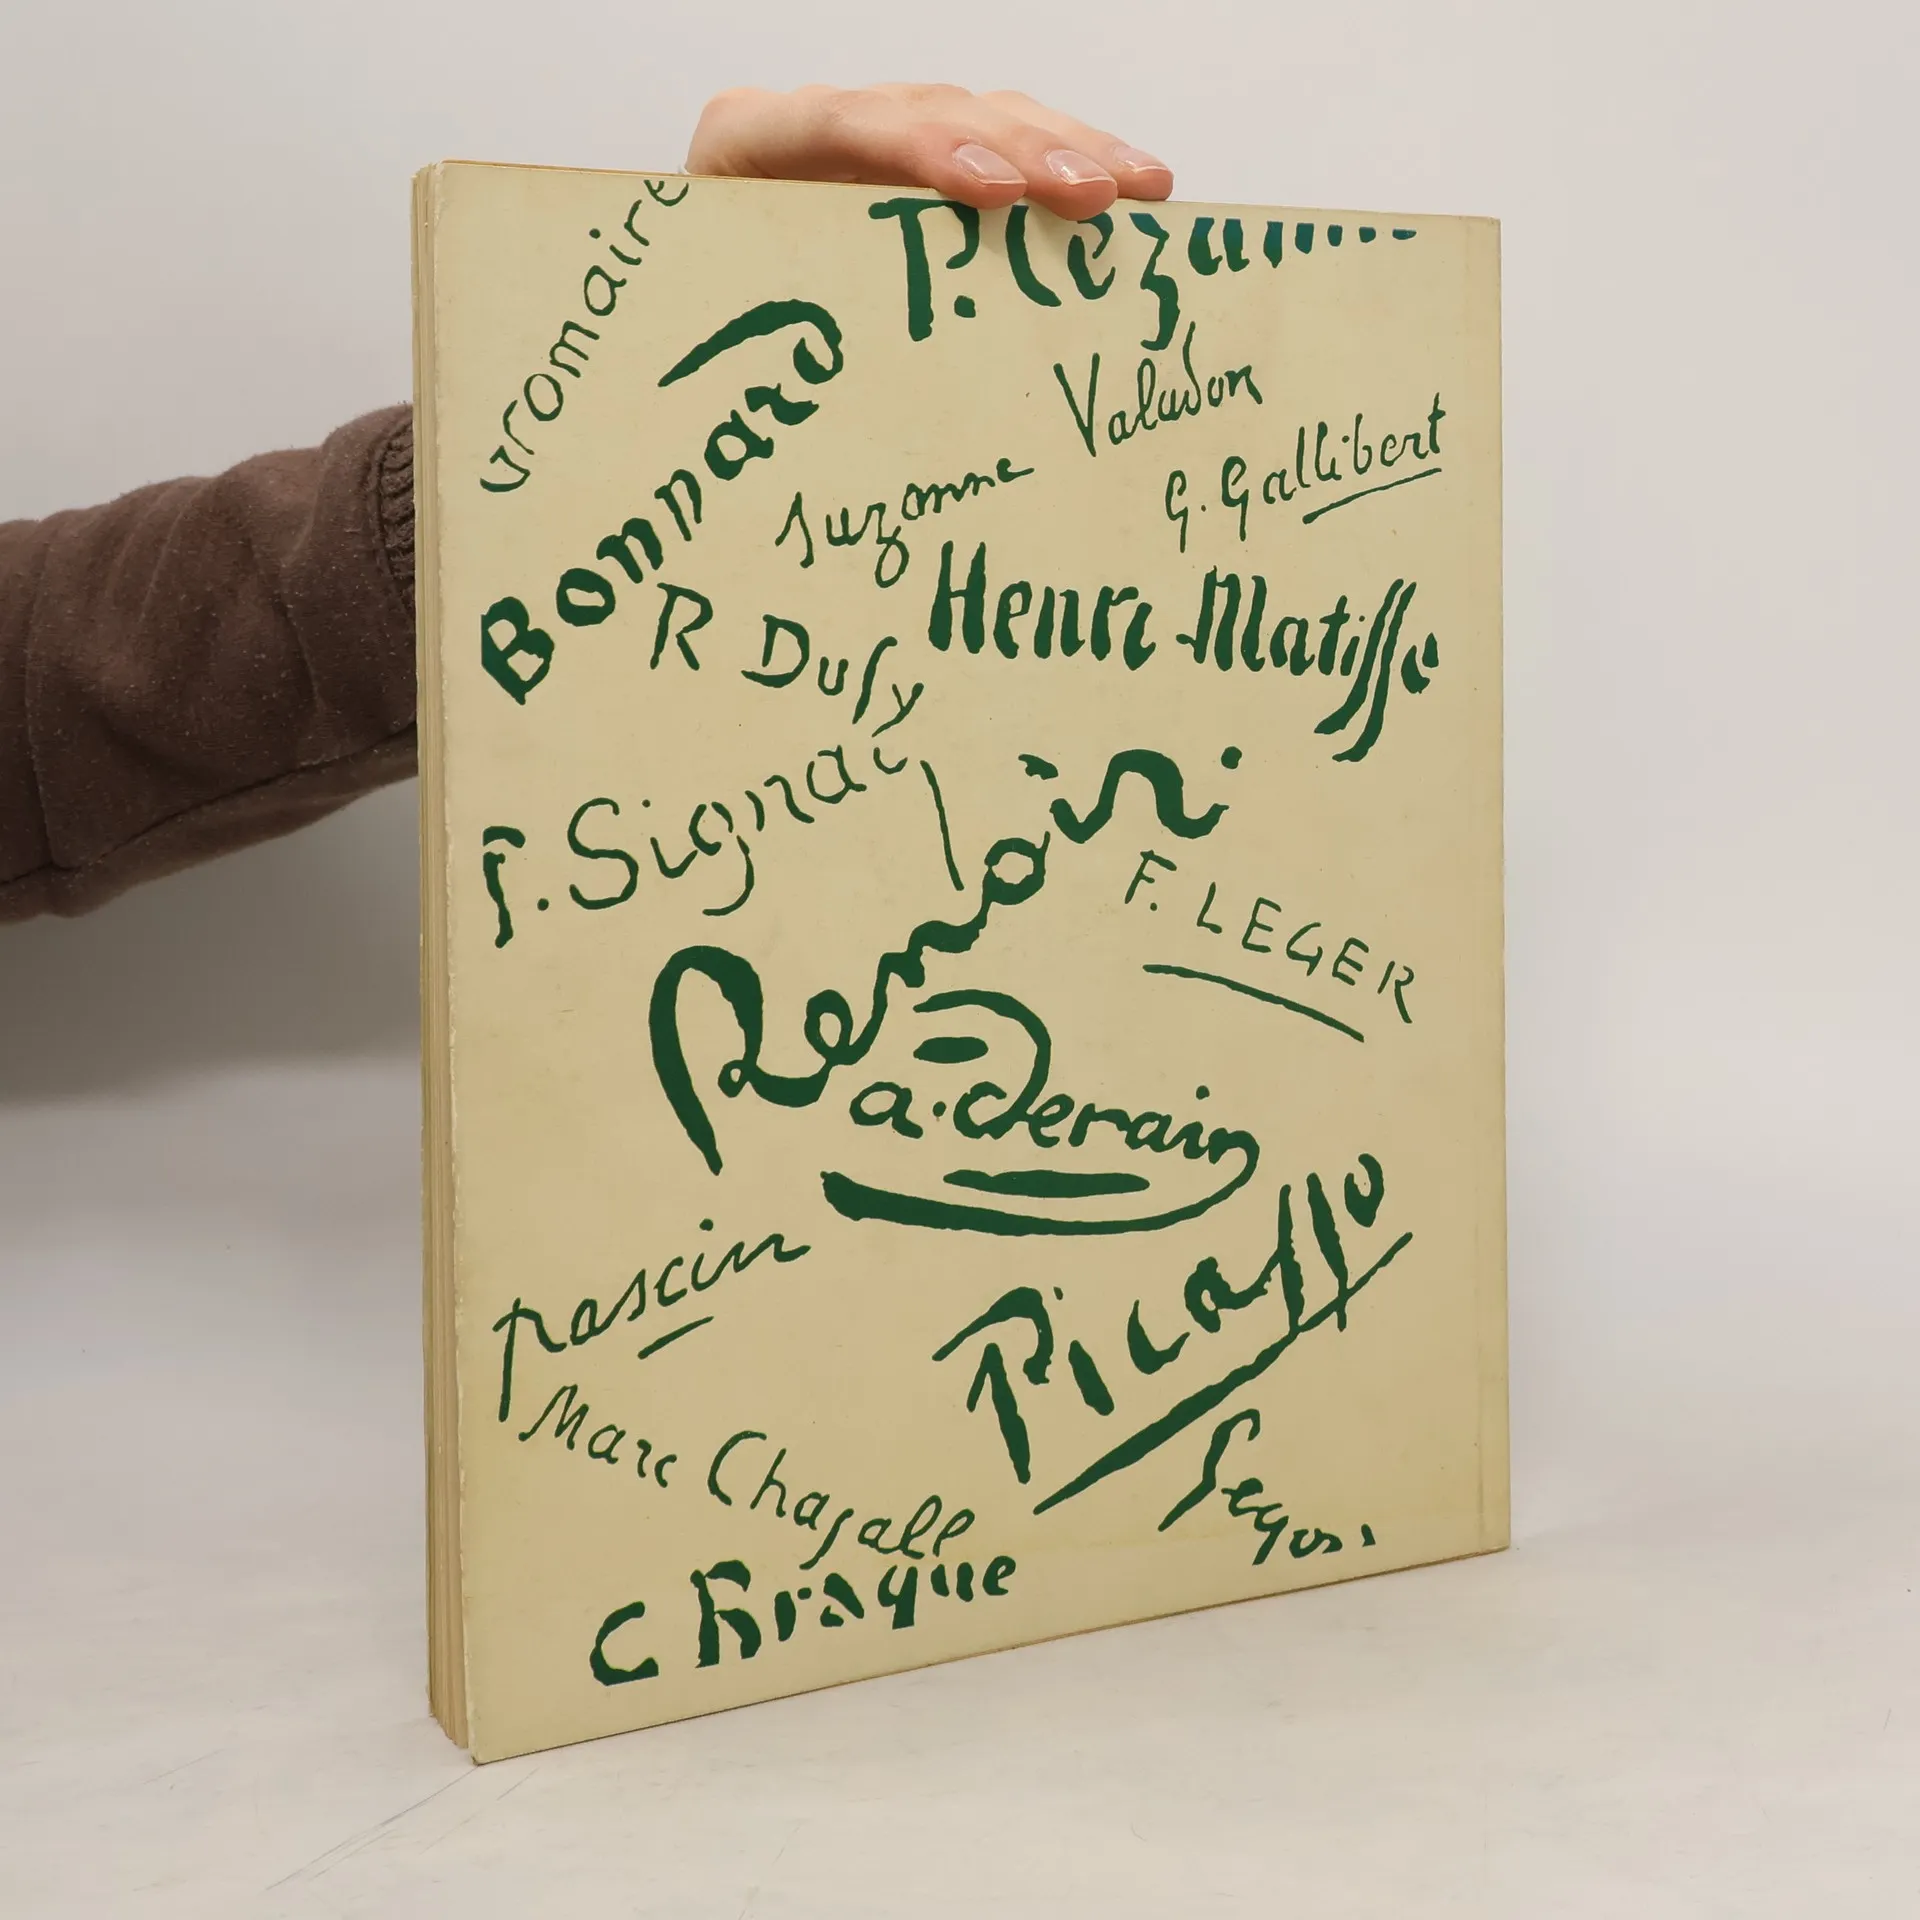 Gromaire
P. Cézanne
Bonnard
Suzanne Valadon
G. Gallibert
R Dufy
Henri-Matisse
P. Signac
Renoir
F. LEGER
a. derain
pascin
Picasso
Marc Chagall
Segon
G Braque